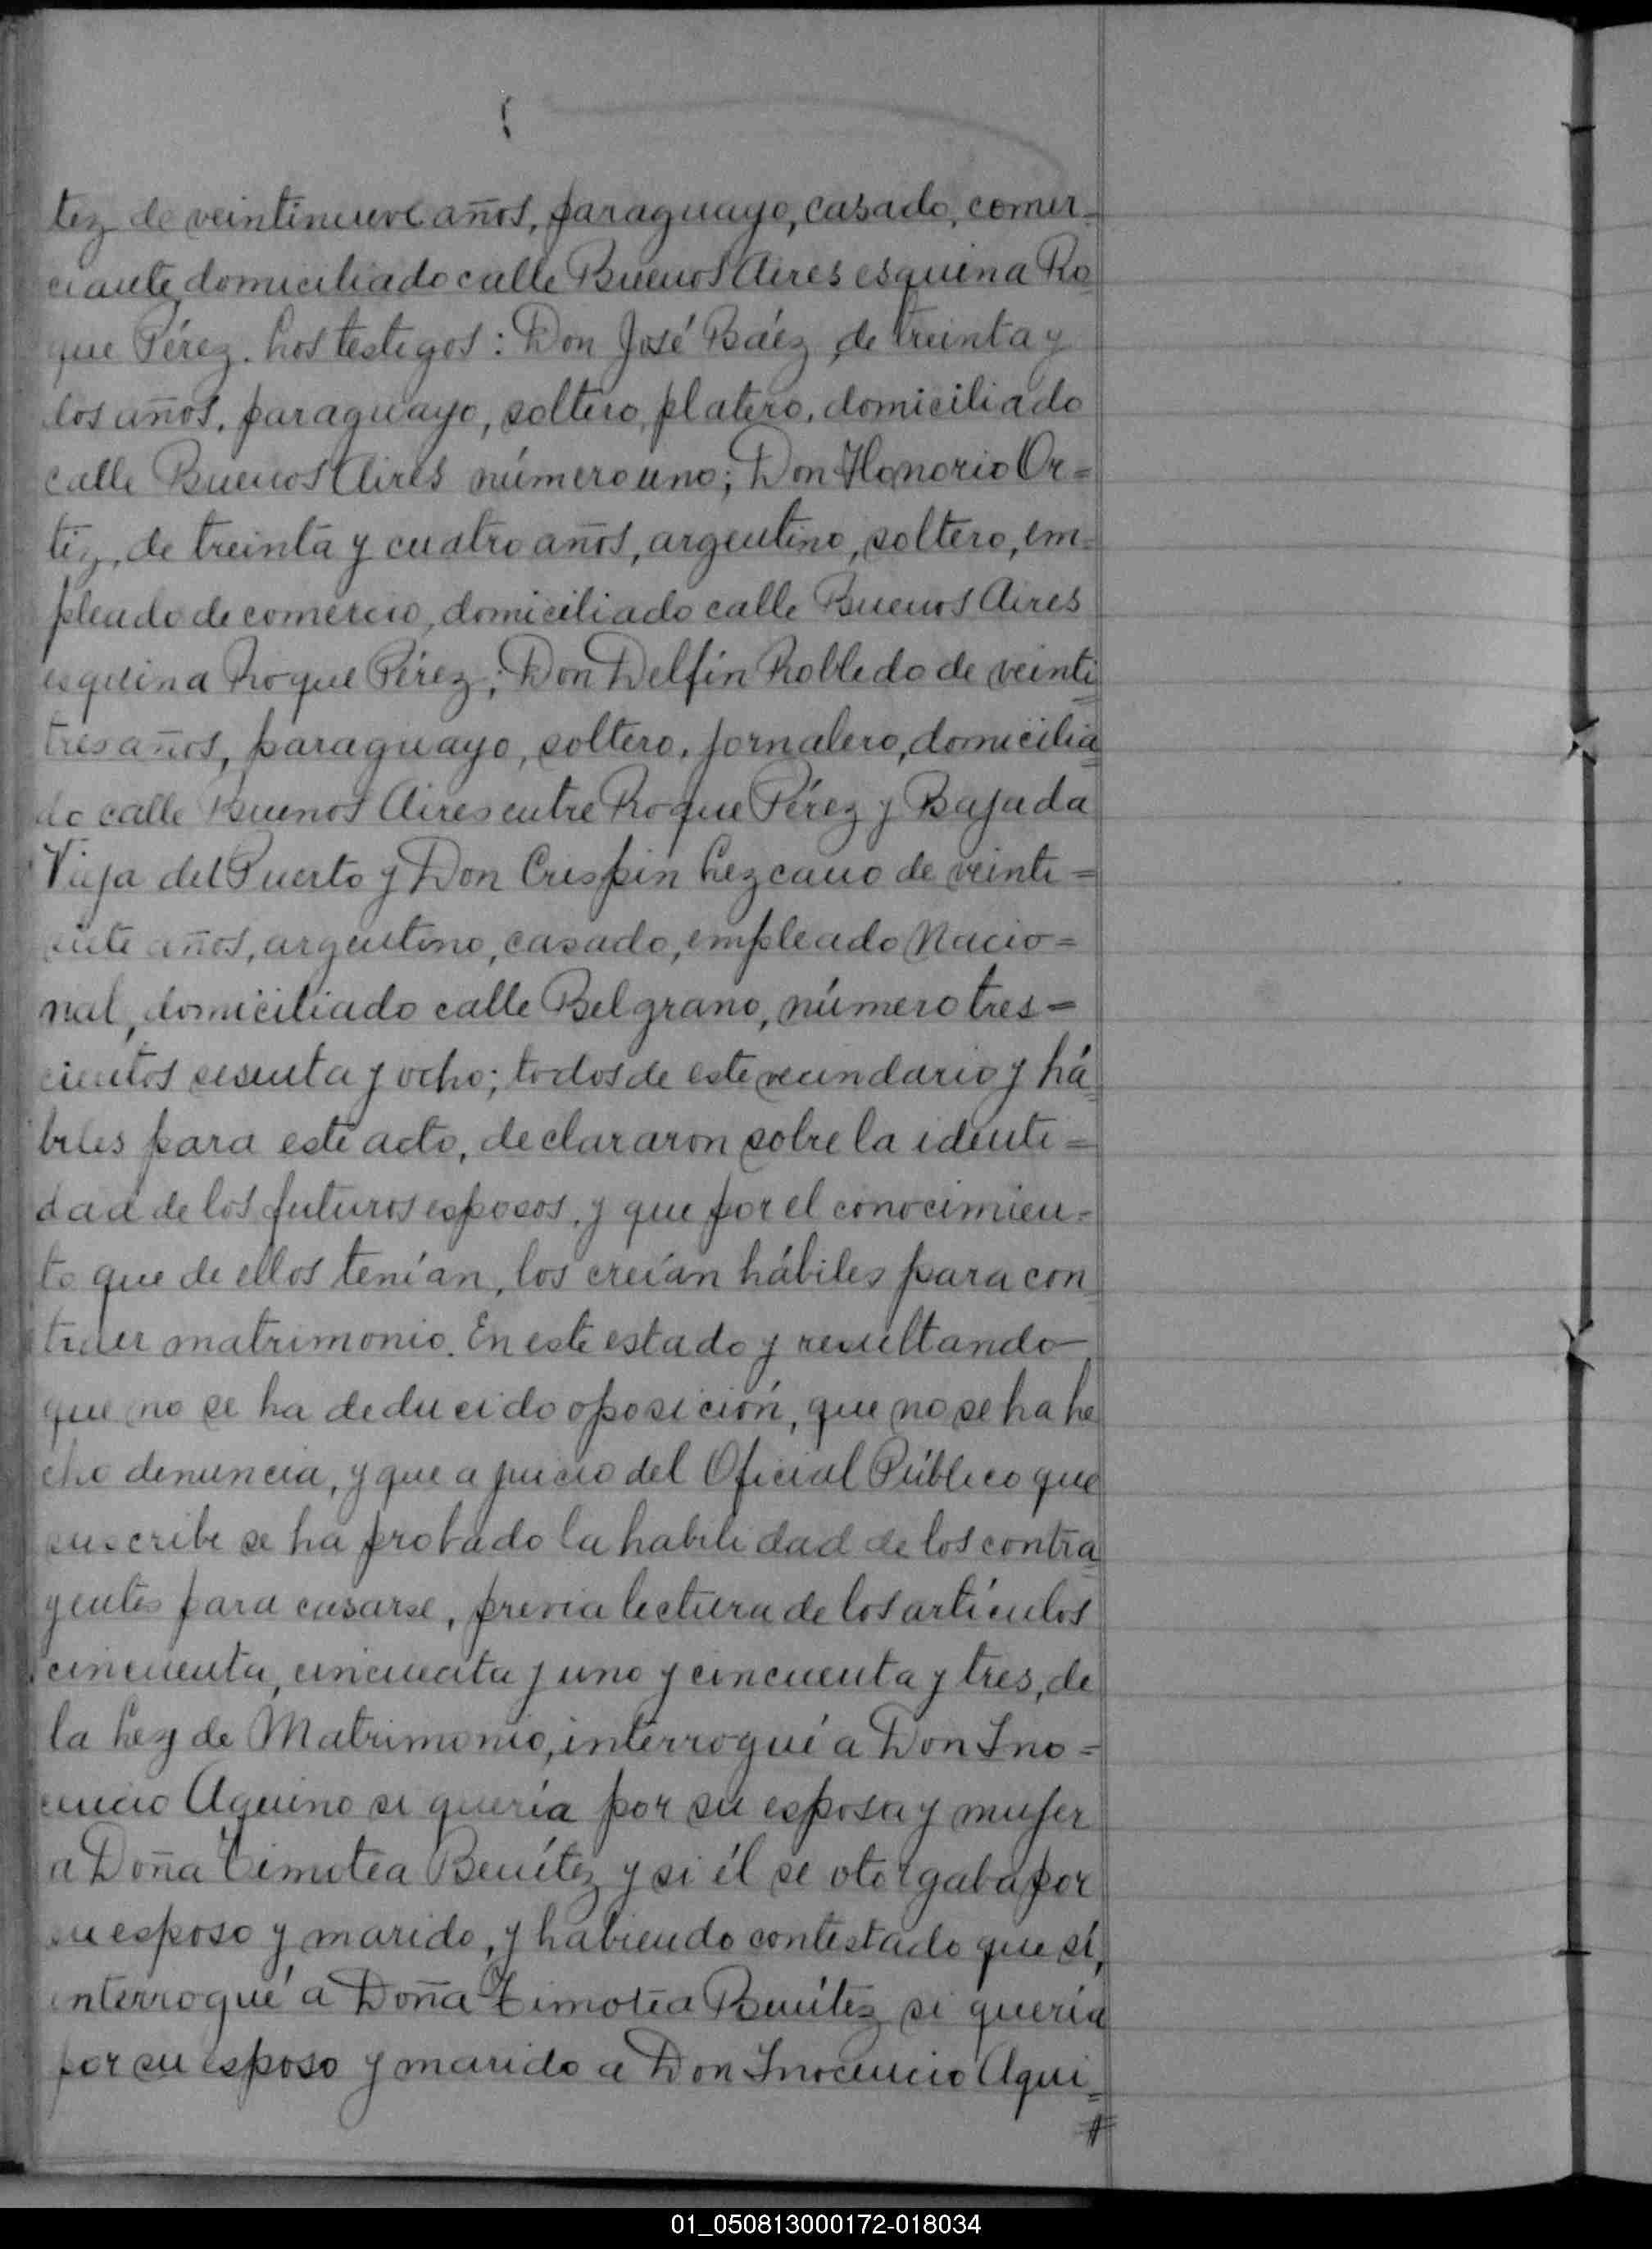 tez de veintinueve años, paraguayo, casado, comer-
ciante, domiciliado calle Buenos Aires esquina Ro
que Pérez. Los testigos: Don José Báez, de treinta y
dos años, paraguayo, soltero, platero, domiciliado
calle Buenos Aires número uno; Don Honorio Or=
tiz, de treinta y cuatro años, argentino, soltero, em=
pleado de comercio, domiciliado calle Buenos Aires
esquina Roque Pérez; Don Delfín Robledo de veinti=
tres años, paraguayo, soltero, jornalero, domicilia=
do calle Buenos Aires entre Roque Pérez y Bajada
Vieja del Puerto y Don Crispín Lezcano de veinti=
años, argentino, casado, empleado Nacio=
nal, domiciliado calle Belgrano, número tres=
cientos sesenta y ocho; todos de este vecindario y há=
biles para este acto, declararon sobre la identi=
dad de los futuros esposos, y que por el conocimien=
to que de ellos tenían, los creían hábiles para con
traer matrimonio. En este estado y resultando
que no se ha deducido oposición, que no se ha he
cho denuncia, y que a juicio del Oficial Público que
suscribe se ha probado la habilidad de los contra=
yentes para casarse, previa lectura de los artículos
cincuenta, cincuenta y uno y cincuenta y tres, de
la Ley de Matrimonio, interrogué a Don Ino=
cencio Aquino si quería por su esposa y mujer
a Doña Timotea Benítez y si él se otorgaba por
su esposo y marido, y habiendo contestado que sí,
interrogué a Doña Timotea Benítez si quería
por su esposo y marido a Don Inocencio Aqui=
#
01_050813000172-018034